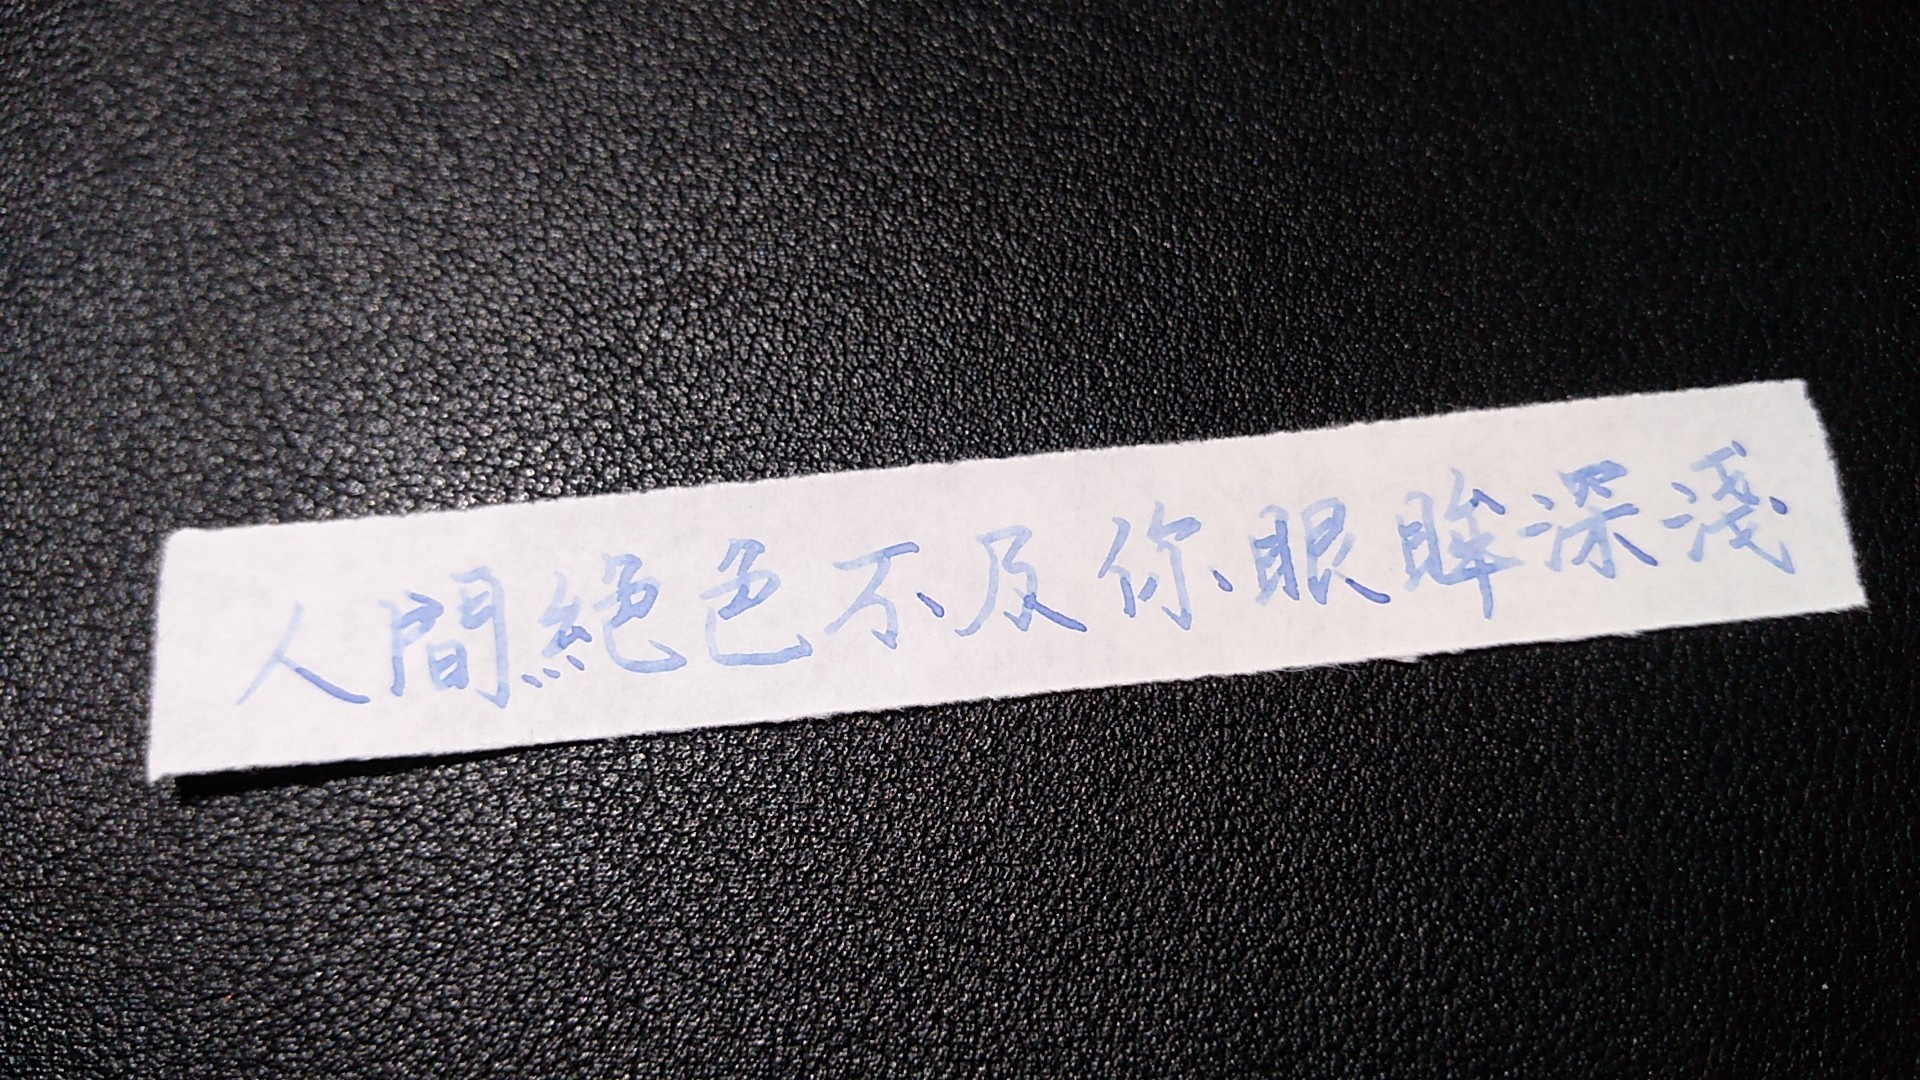 人間絕色不及你眼眸深淺